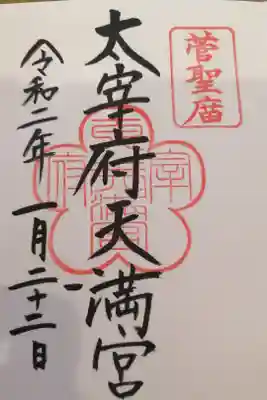 菅聖庿
太宰府天満宮
令和二年一月二十二日